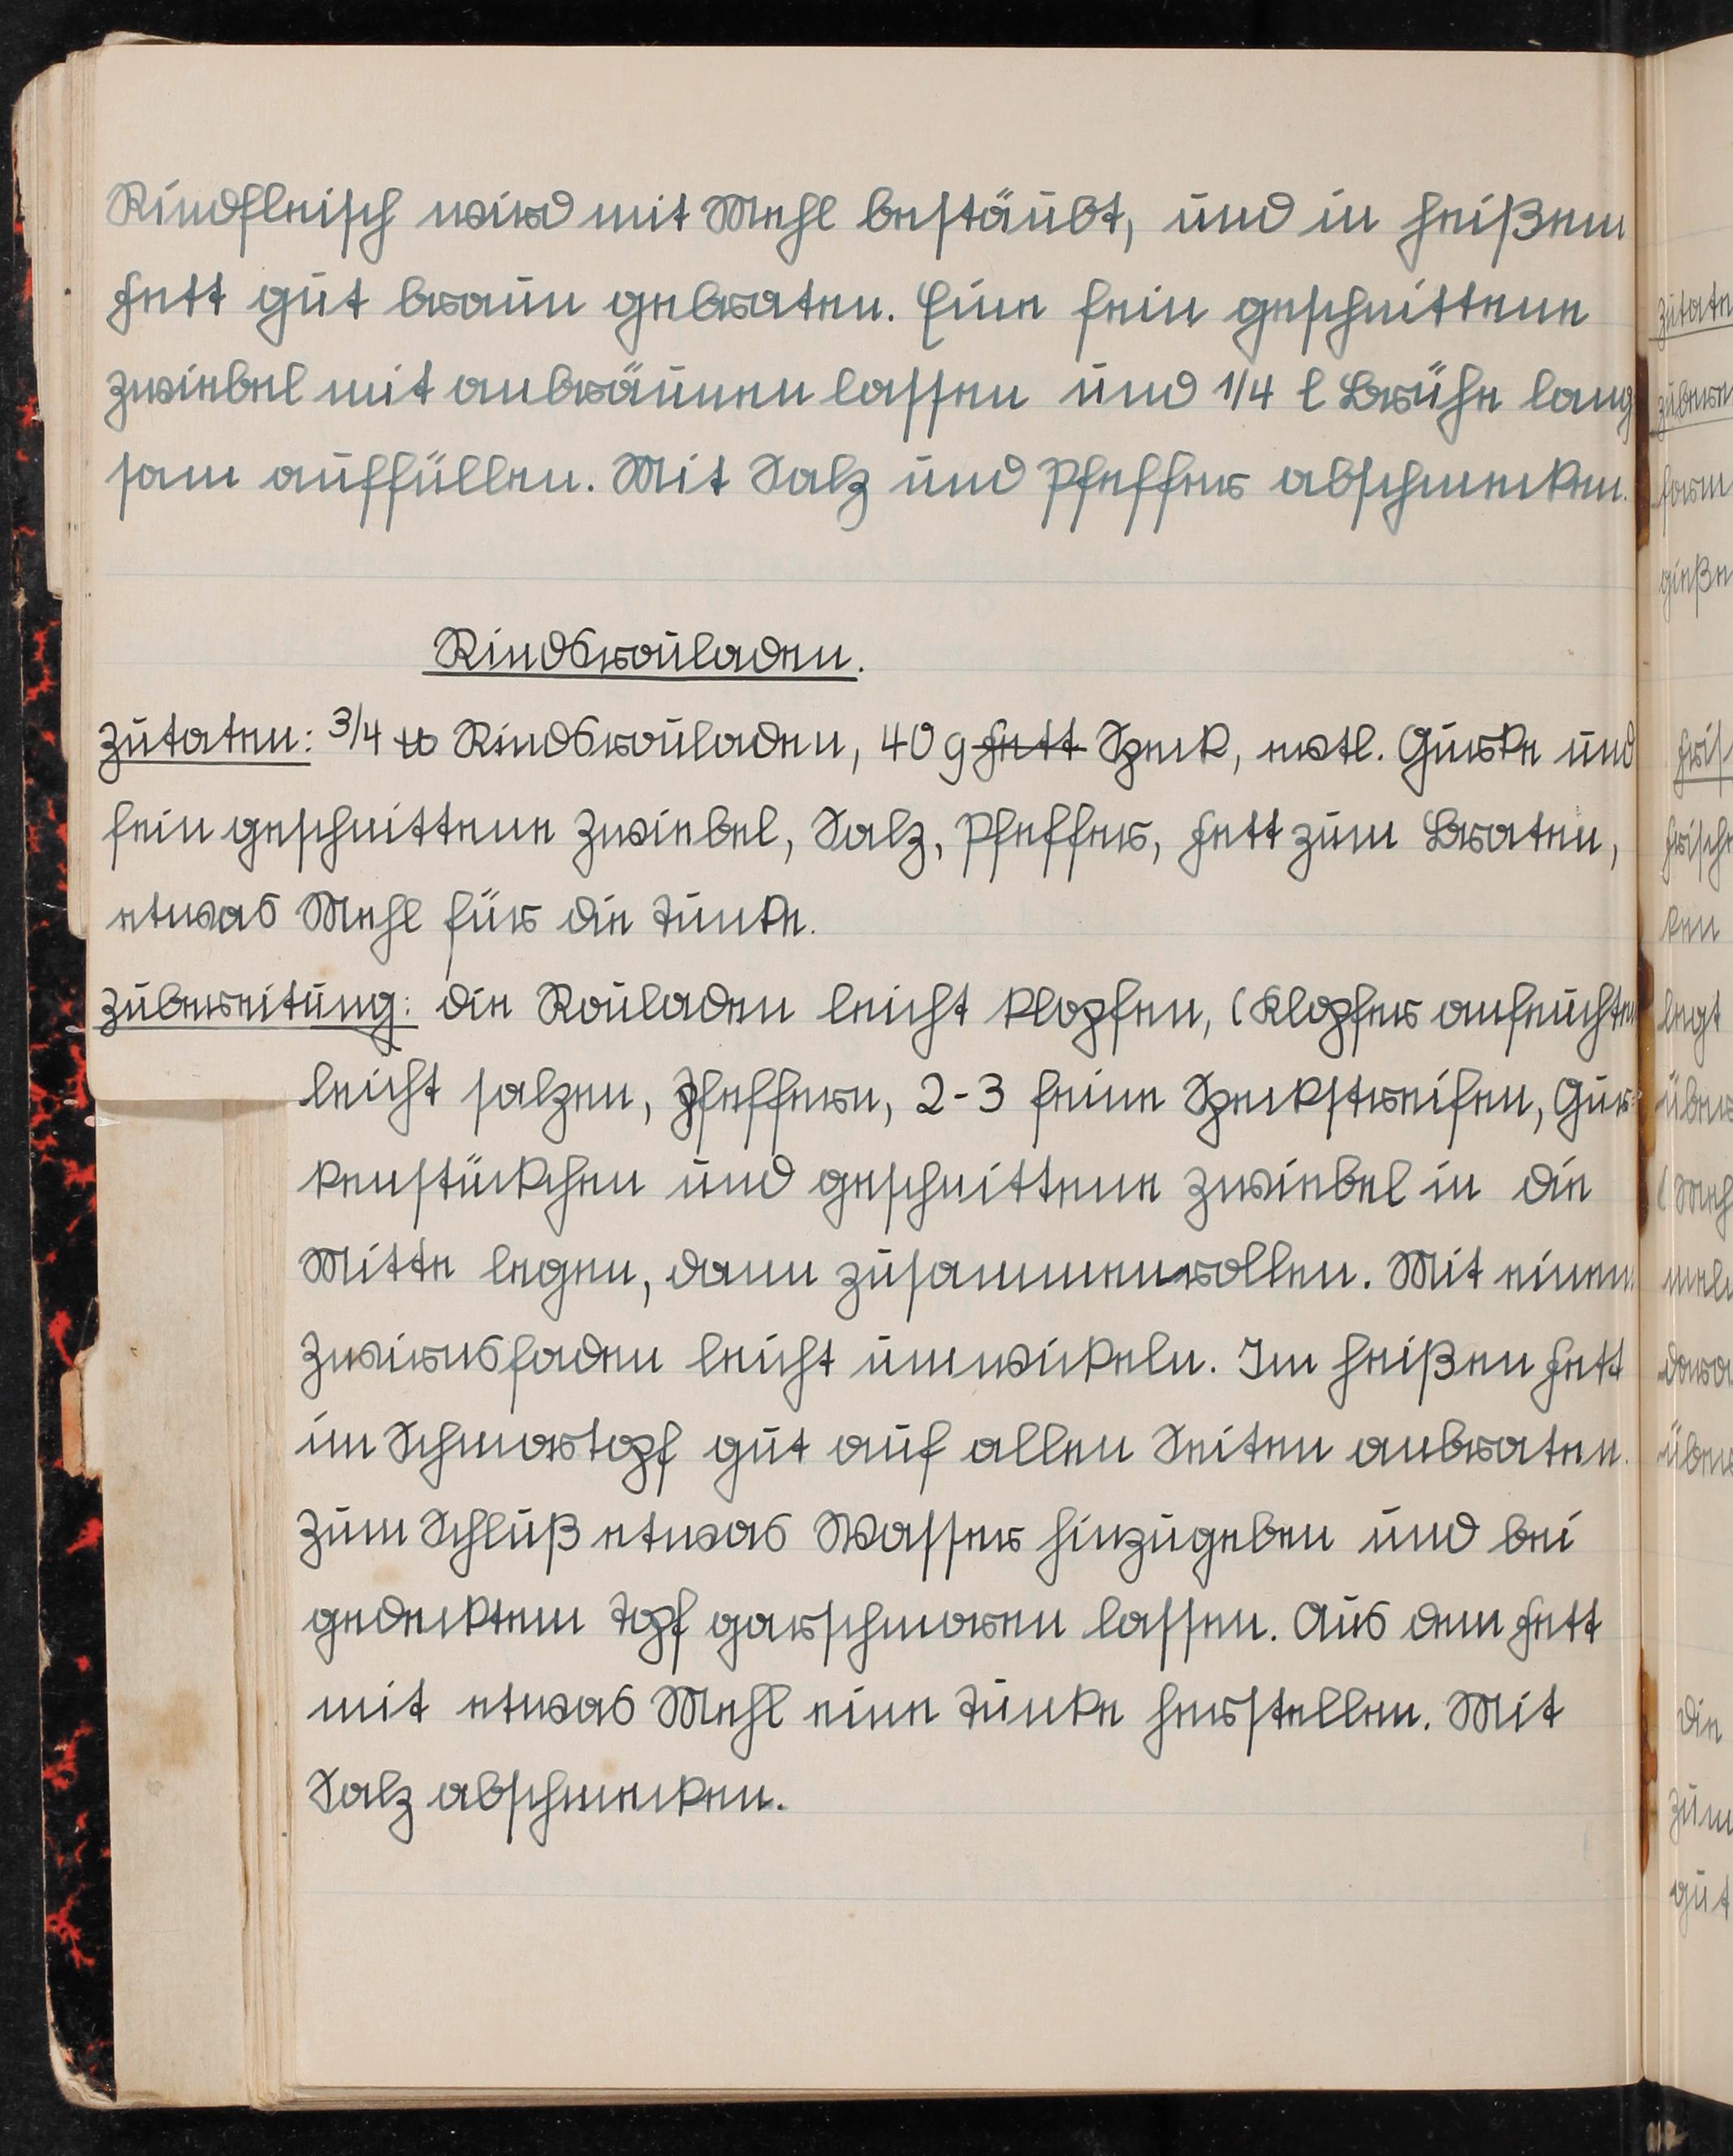 Rindfleisch wird mit Mehl bestäubt, und in heißem
Fett gut braun gebraten. Eine fein geschnittene
Zwiebel mit anbräunen lassen und 1/4 l Brühe lang
sam auffüllen. Mit Salz und Pfeffer abschmecken.
Rindsrouladen.
Zutaten: 3/4 ℔ Rindsrouladen, 40 g Fett Speck, evtl. Gurke und
fein geschnittene Zwiebel, Salz, Pfeffer, Fett zum Braten,
etwas Mehl für die Tunke.
Zubereitung: Die Rouladen leicht klopfen, (Klopfer anfeuchten
leicht salzen, pfeffern, 2-3 feine Speckstreifen, Gur-
kenstückchen und geschnittene Zwiebel in die
Mitte legen, dann zusammenrollen. Mit einem
Zwirnsfaden leicht umwickeln. Im heißen Fett
im Schmortopf gut auf allen Seiten anbraten.
Zum Schluß etwas Wasser hinzugeben und bei
gedecktem Topf garschmoren lassen. Aus dem Fett
mit etwas Mehl eine Tunke herstellen. Mit
Salz abschmecken.